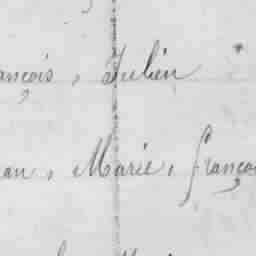 ançois, Julien
an, Marie, franço